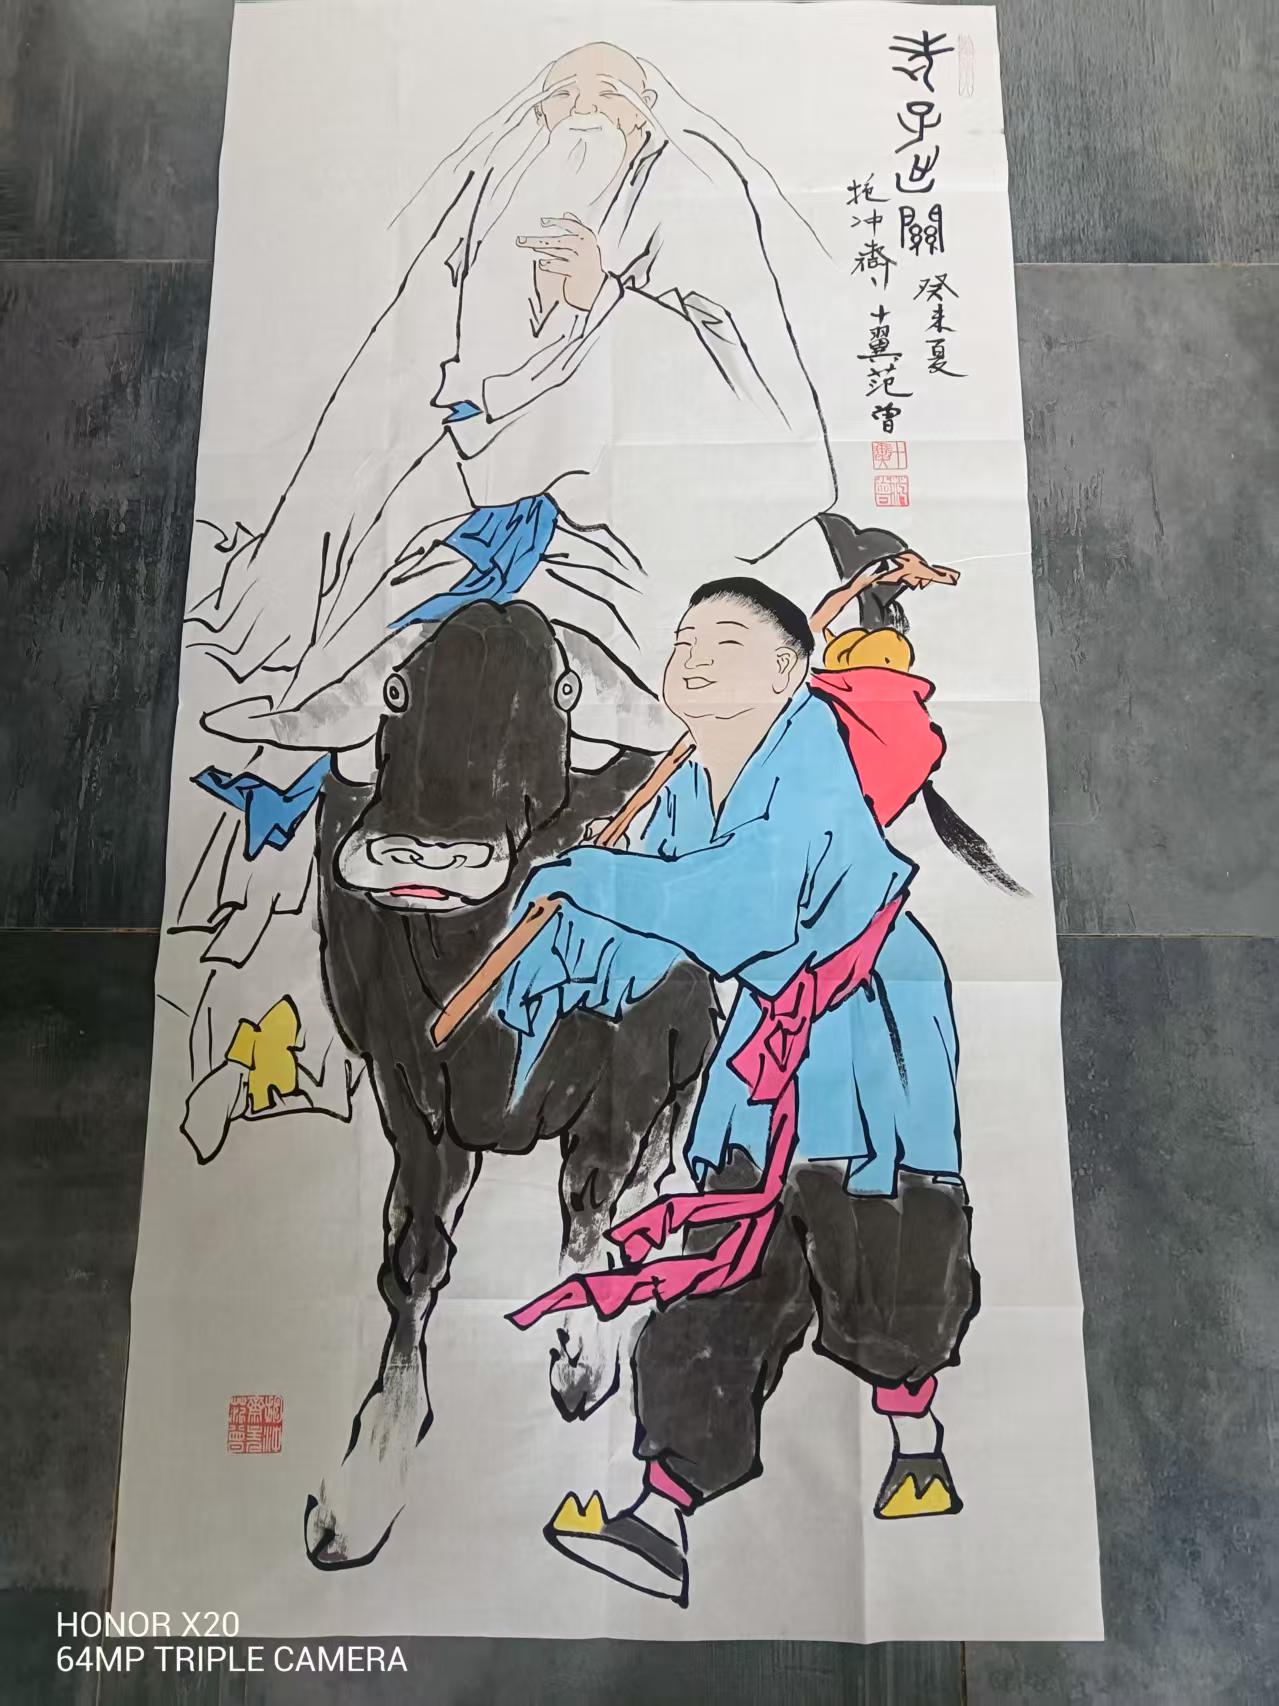 老子出關
癸未夏
抱冲齋
十翼范曾
十翼
范曾
HONOR X20
64MP TRIPLE CAMERA